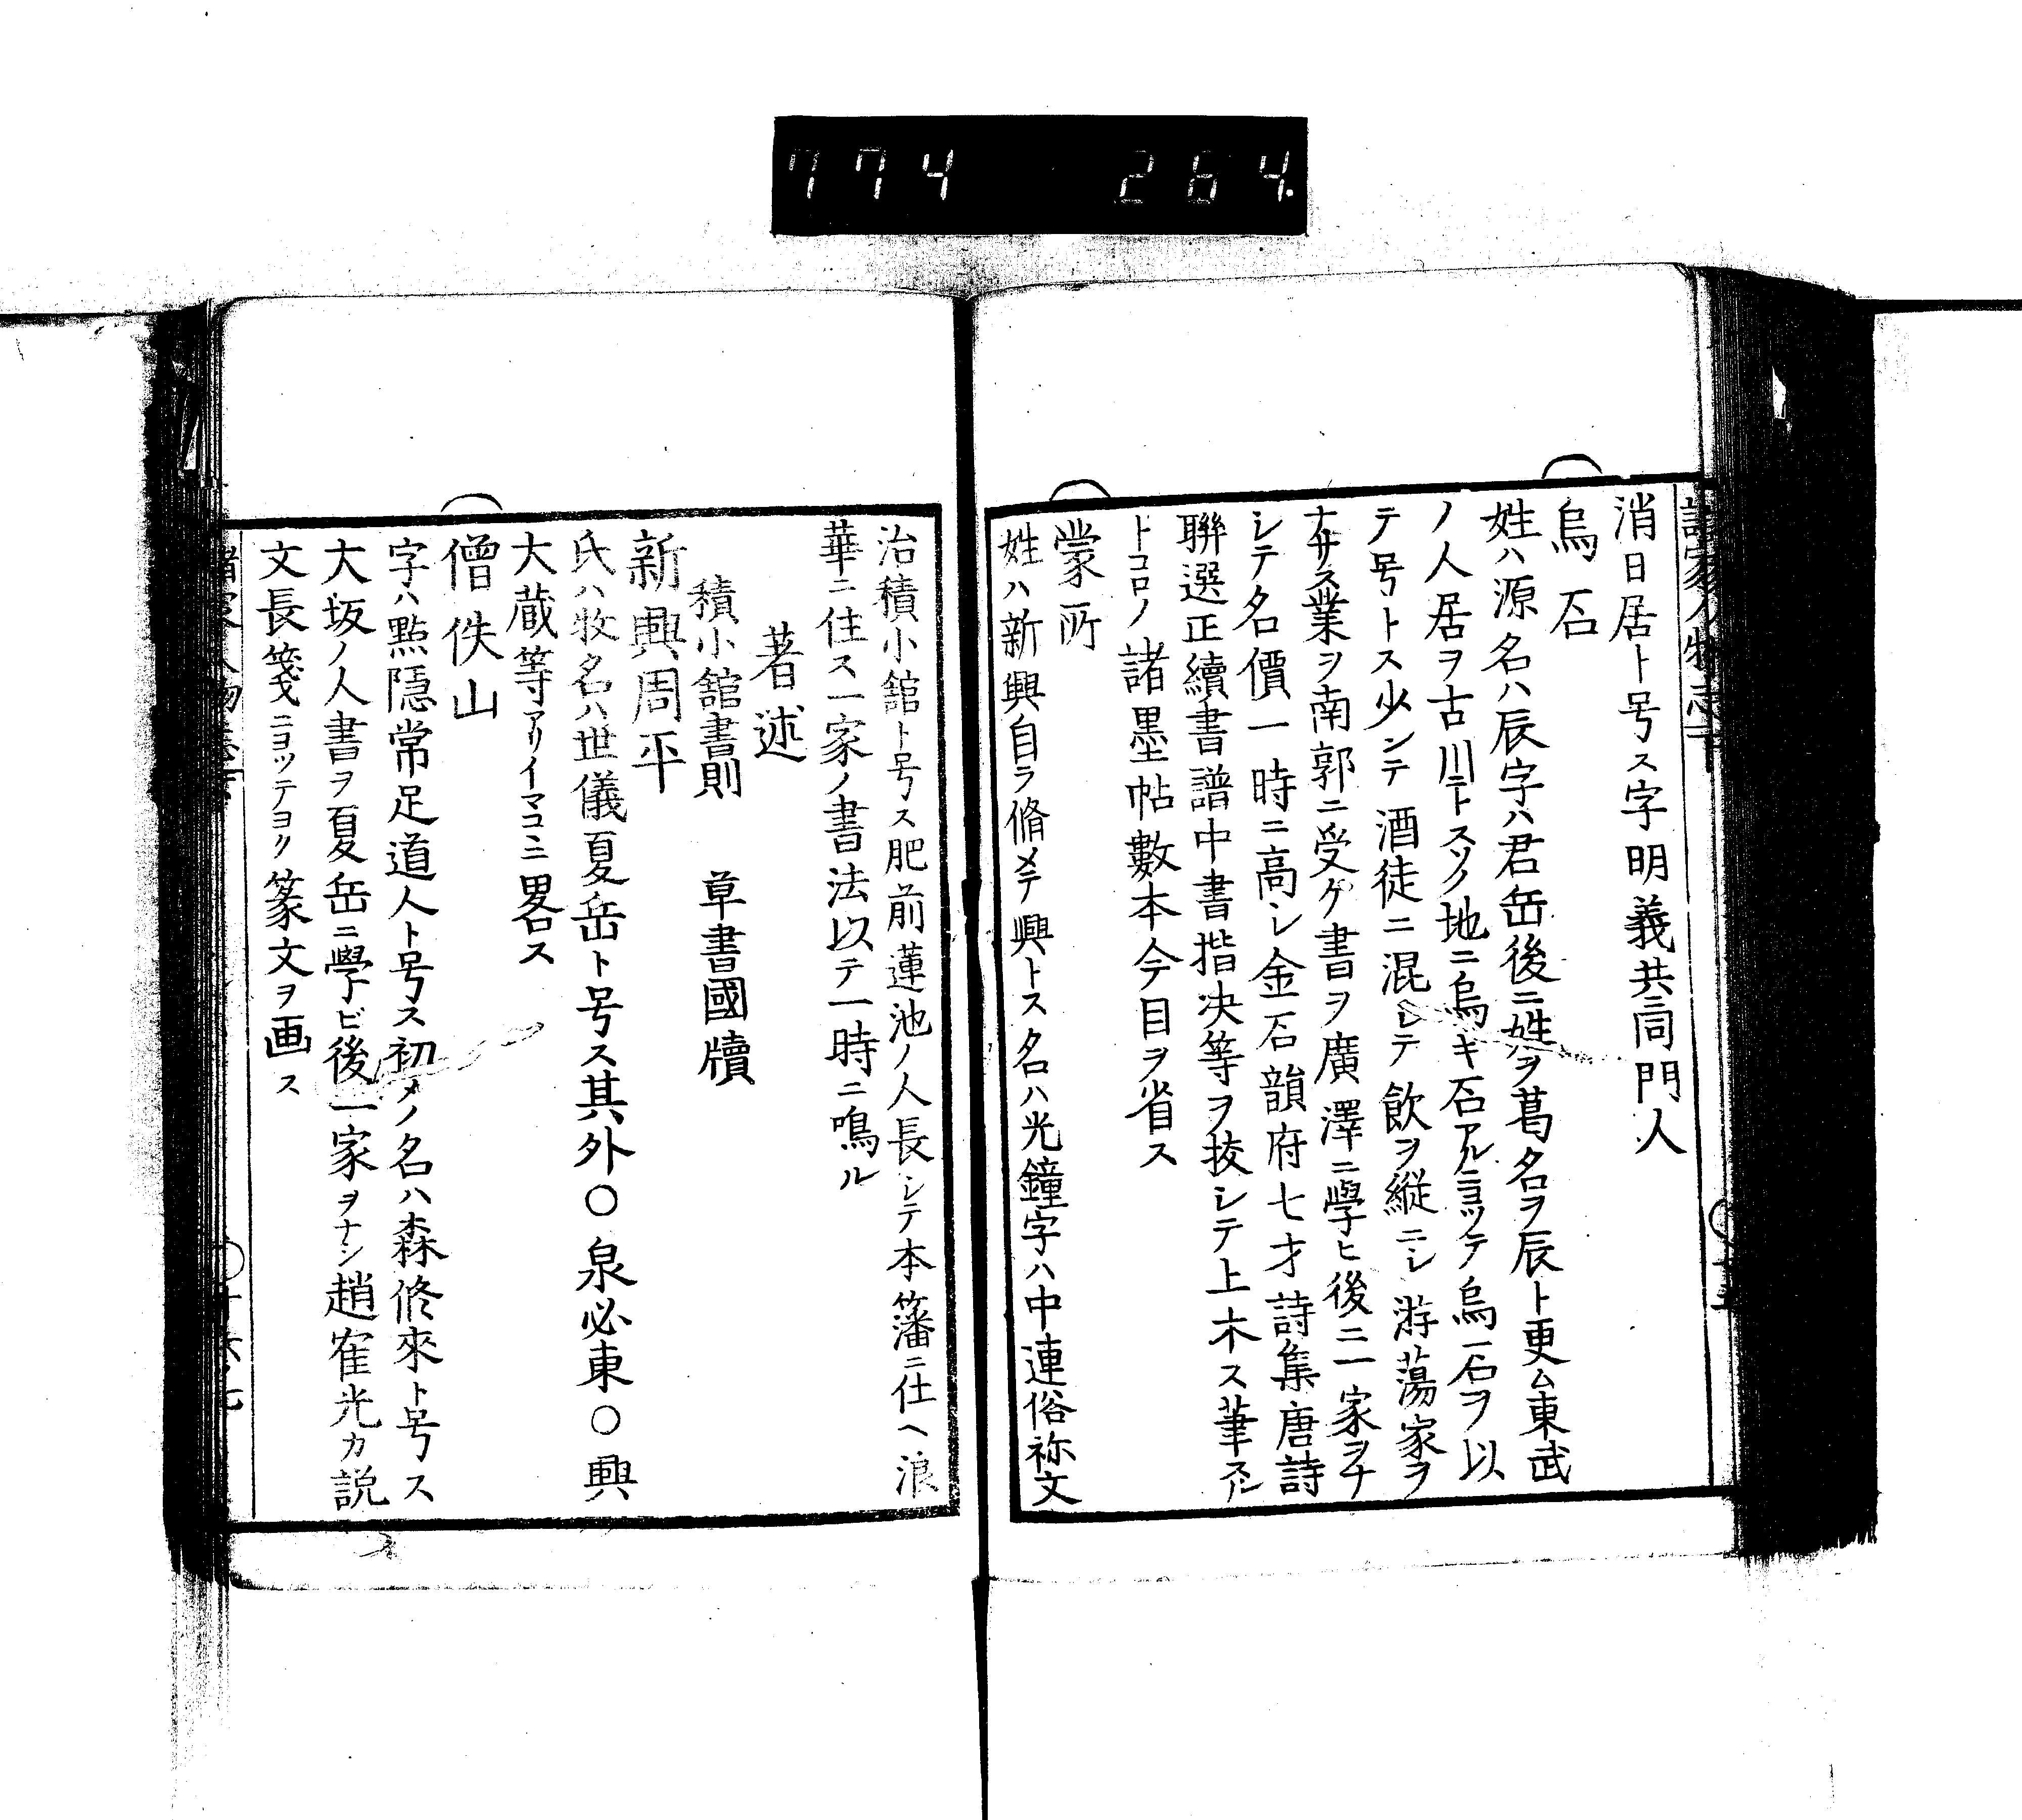 774 264
消日居ト号ス字明義共ニ同門人
烏石
姓ハ源名ハ辰字ハ君岳後ニ姓ヲ葛名ヲ辰ト更ム東武
ノ人居ヲ古川ニトスソノ地ニ烏キ石アルニヨツテ烏石ヲ以
テ号トス少シテ酒徒ニ混シテ飲ヲ縦ニシ游蕩家ヲ
ナサス業ヲ南郭ニ受ケ書ヲ廣澤ニ學ヒ後ニ一家ヲナ
シテ名價一時ニ高シ金石韻府七才詩集唐詩
聯選正續書譜中書楷决等ヲ抜シテ上木ス筆スル
トコロノ諸墨帖數本今目ヲ省ス
蒙所
姓ハ新興自ラ脩メテ興トス名ハ光鐘字ハ中連俗祢文
治積小舘ト号ス肥前蓮池ノ人長シテ本藩ニ仕ヘ浪
華ニ住ス一家ノ書法以テ一時ニ鳴ル
著述
積小舘書則 草書國牘
新興周平
氏ハ牧名ハ世儀夏岳ト号ス其外〇泉必東〇興
大蔵等アリイマコヽニ畧ス
僧佚山
字ハ黙隠常足道人ト号ス初メノ名ハ森修來ト号ス
大坂ノ人書ヲ夏岳ニ學ビ後一家ヲナシ趙寉光カ説
文長箋ニヨツテヨク篆文ヲ画ス